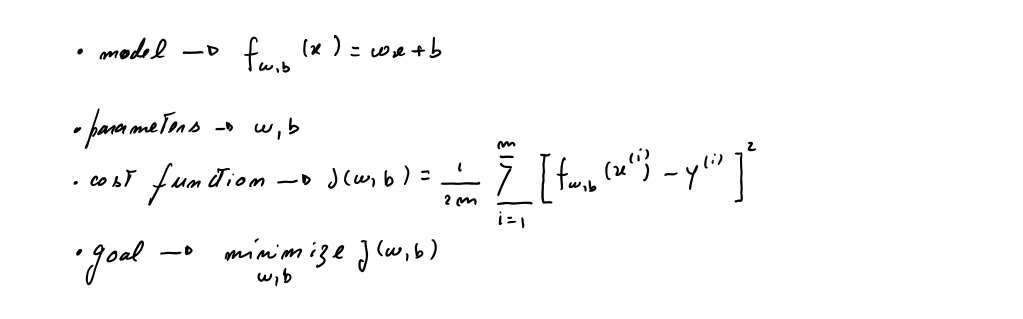 • model → f_{w,b}(x) = wx + b
• parameters → w, b
• cost function → J(w, b) = \frac{1}{2m} \sum_{i=1}^{m} [f_{w,b}(x^{(i)}) - y^{(i)}]^2
• goal → minimize_{w,b} J(w, b)